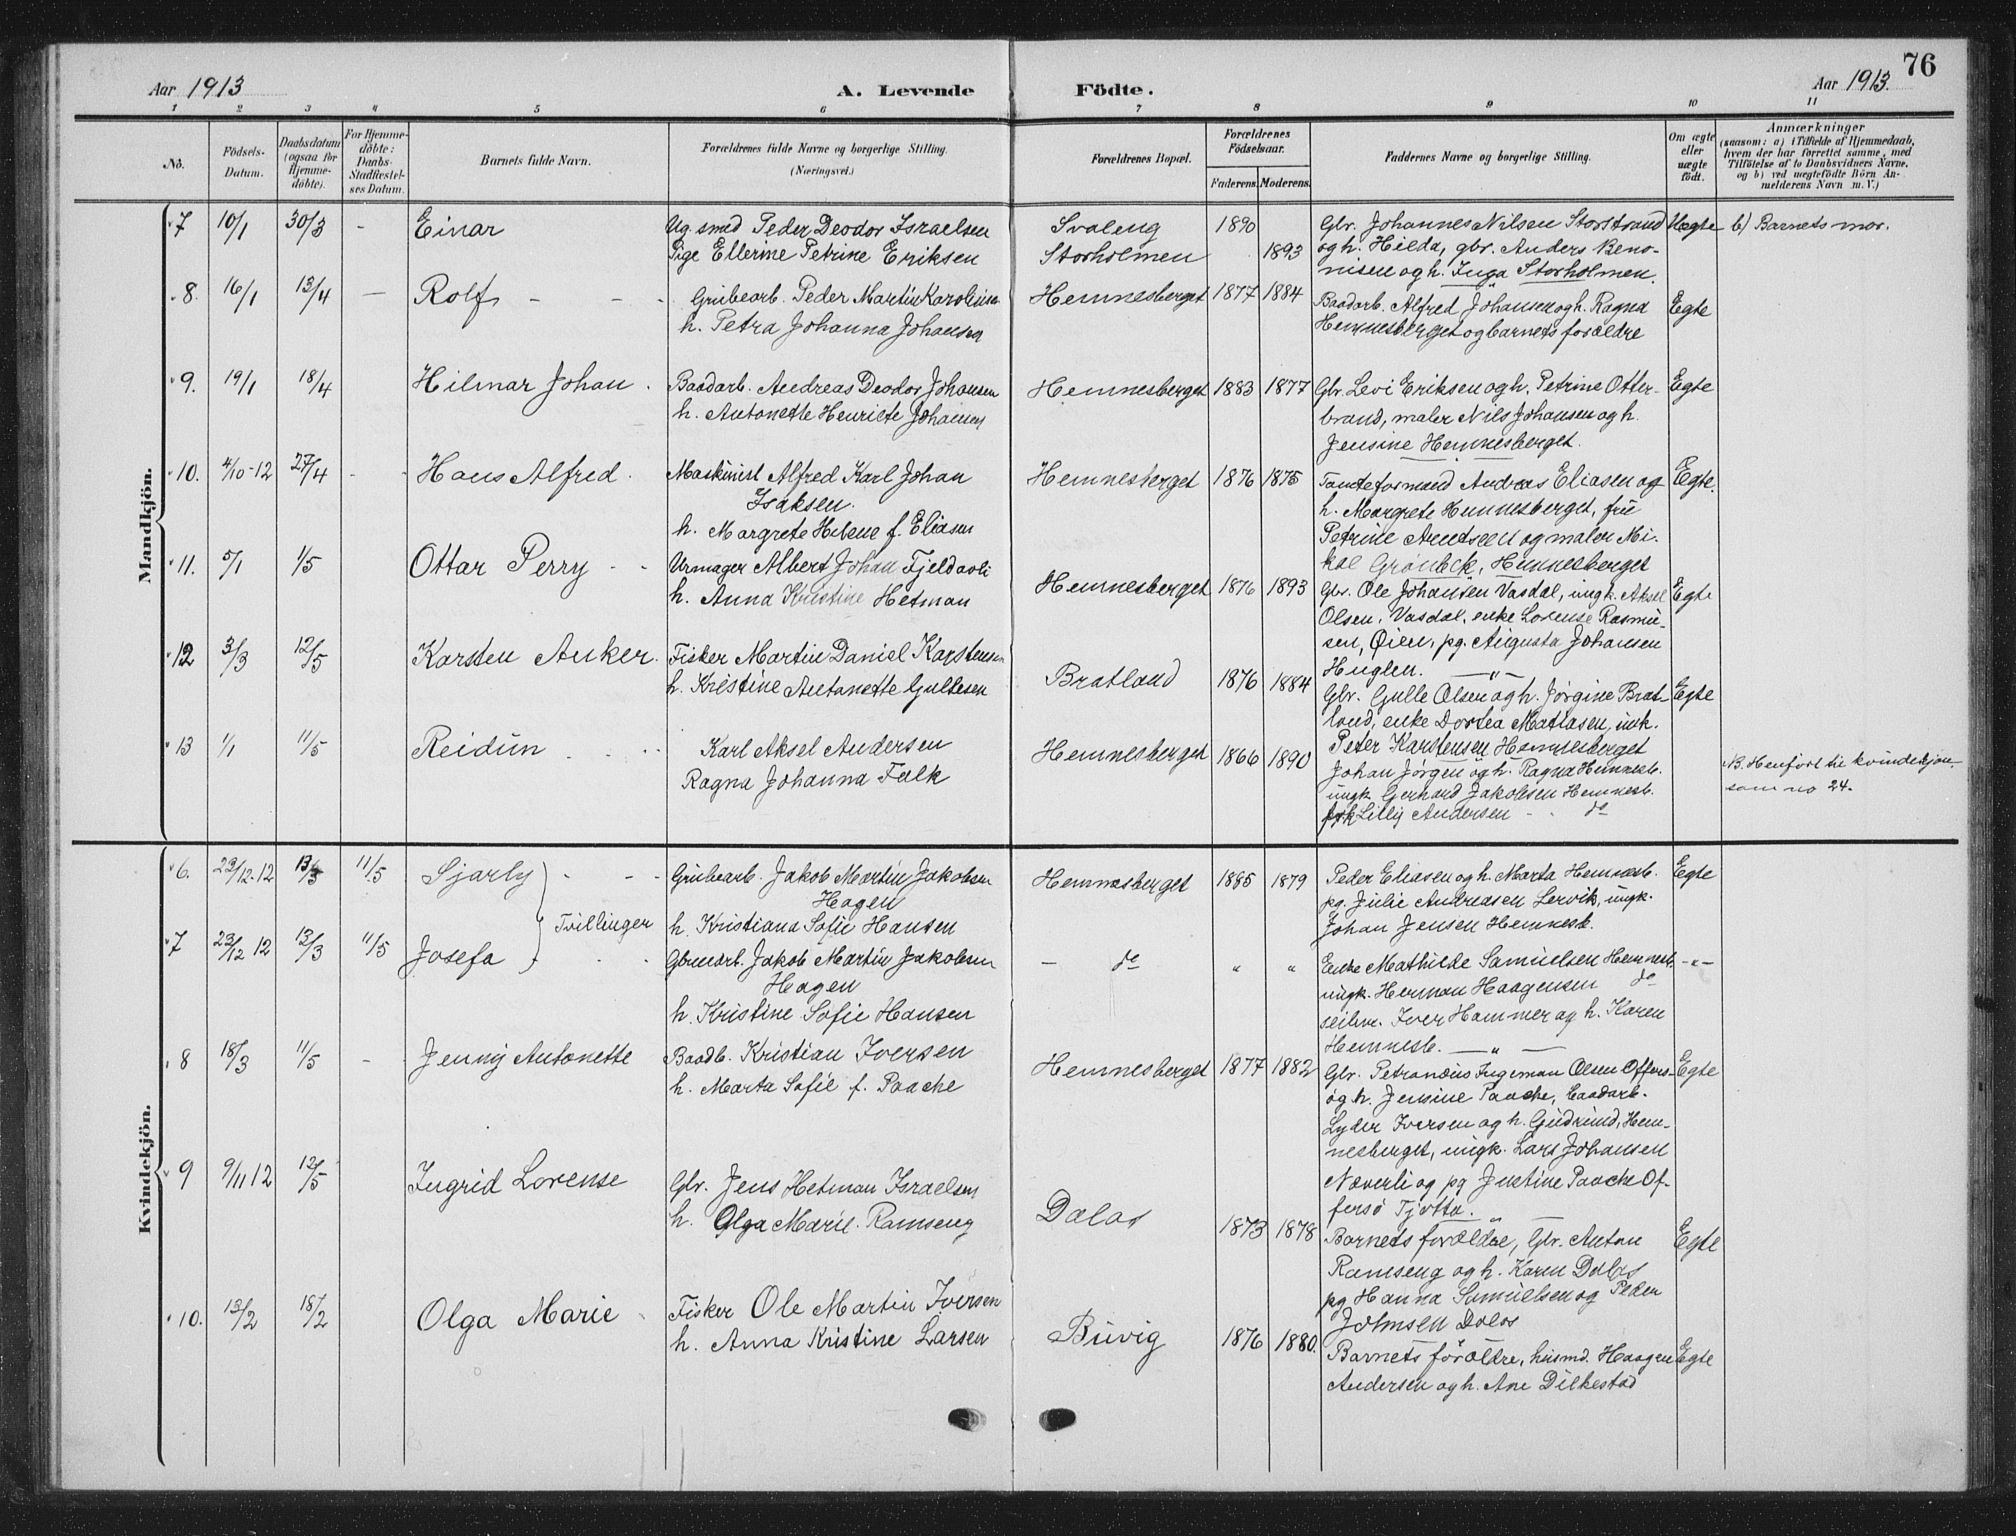 76
Aar 1913
A. Levende Födte.
Aar 1913.
1 2 3 4 5 6 7 8 9 10 11
Nò.
Födsels-Datum.
Daabsdatum (ogsaa for Hjemmedöbte).
For Hjemmedöbte: Daabs-Stadfæstelses Datum.
Barnets fulde Navn.
Forældrenes fulde Navne og borgerlige Stilling.
(Næringsvei.)
Forældrenes Bopæl.
Forældrenes Födselsaar.
Faderens. Moderens.
Faddernes Navne og borgerlige Stilling.
Om ægte eller uægte födt.
Anmærkninger
(saasom: a) i Tilfælde af Hjemmedaab,
hvem der har forrettet samme, med
Tilföielse af to Daabsvidners Navne,
og b) ved uægtefödte Börn An-
melderens Navn m. V.)
Mandkjön.
7 10/1 30/3 - Einar
Ug. smed Peder Deodor Israelsen
Pige Ellerine Petrine Eriksen
Svaleng 1890
Storholmen 1893
Gbr. Johannes Nilsen Storstrand
og h. Hilda, gbr. Anders Beno-
nisen og h. Inga Storholmen.
Uægte b) Barnets mor.
8. 16/1 13/4 - Rolf - - -
Grubearb. Peder Martin Karolius
h. Petra Johanna Johansen
Hemnesberget 1877 1884
Baadarb. Alfred Johansen og h. Ragna
Hemnesberget og barnets forældre
Egte
9. 19/1 18/4 Hilmar Johan.
Baadarb. Andreas Deodor Johansen
h. Antonette Henriette Johansen
Hemnesberget 1883 1877
Gbr. Levi Eriksen og h. Petrine Otter-
brand, maler Nils Johansen og h.
Jensine Hemnesberget.
Egte
10. 4/10-12 27/4 - - Hans Alfred.
Maskinist Alfred Karl Johan
Isaksen.
h. Margrete Helene f. Eliasen
Hemnesberget 1876 1875
Tomteformand Andreas Eliasen og
h. Margrete Hemnesberget, fru
Petrine Arntsen og maler Mi-
kal Grönbeck, Hemnesberget
Egte.
11. 5/1 1/5 Ottar Perry - -
Urmager Albert Johan Fjeldavli
h. Anna Kristine Hetman
Hemnesberget 1876 1893
Gbr. Ole Johansen Vasdal, ungk. Aksel
Olsen, Vasdal, enke Lorense Rasmu-
sen, Øien, pg. Augusta Johansen
Huglen. — " —
Egte
12 3/3 12/5 Karsten Anker.
Fisker Martin Daniel Karstensen
h. Kristine Antonette Gullesen
Bratland 1876 1884
Gbr. Gulle Olsen og h. Jørgine Brat-
land, enke Dortea Matiasen, unk.
Peter Karstensen Hemnesberget
Egte
13 1/1 11/5 Reidun
Karl Aksel Andersen
Ragna Johanna Falk
Hemnesberget 1866 1890
Johan Jörgen og h. Ragna Hemnesb.
ungk. Gerhard Jakobsen Hemnesb.
frk Lilly Andersen - - do
NB. Henfört til kvindekjøn
som no 24.
Kvindekjön.
6. 29/12-12 13/3 11/5 Sjarly - - -
Grubearb. Jakob Martin Jakobsen
Hagen
h. Kristiana Sofie Hansen
Hemnesberget 1885 1879
Peder Eliasen og h. Marta Hemnesb.
pg. Julie Andreasen Lervik, ungk.
Johan Jensen Hemnesb.
Egte
Tvillinger
7 29/12 12 13/3 11/5 Josefa - -
Grubearb. Jakob Martin Jakobsen
Hagen
h. Kristine Sofie Hansen
— do " "
Enke Mathilde Samuelsen Hemnesb.
ungk. Herman Haagensen do
Iver Hammer og h. Karen
Hemnesb. — " —
- " -
8 18/3 11/5 - Jenny Antonette
Baadb. Kristian Iversen
h. Marta Sofie f. Paache
Hemnesberget 1877 1882
Gbr. Petranæus Ingeman Olsen Offers-
ö og h. Jensine Paache, baadarb.
Lyder Iversen og h. Gudrund, Hem-
nesberget, ungk. Lars Johansen
Næverli og pg Justine Paache Of-
fersö Tjötta. "—
Egte
9 9/11 12 12/5 Ingrid Lorense
Gbr. Jens Hetman Israelsen
h. Olga Marie Ramseng
Dalos 1873 1878
Barnets forældre, Gbr. Anton
Ramseng og h. Karen Dalos
pg Hanna Samuelsen og Peder
Johnsen Dalos
Egte
10. 13/2 18/2 Olga Marie
Fisker Ole Martin Iversen
h. Anna Kristine Larsen
Buvig 1876 1880.
Barnets forældre, husmd. Haagen
Andersen og h. Ane Dilkestad
Egte